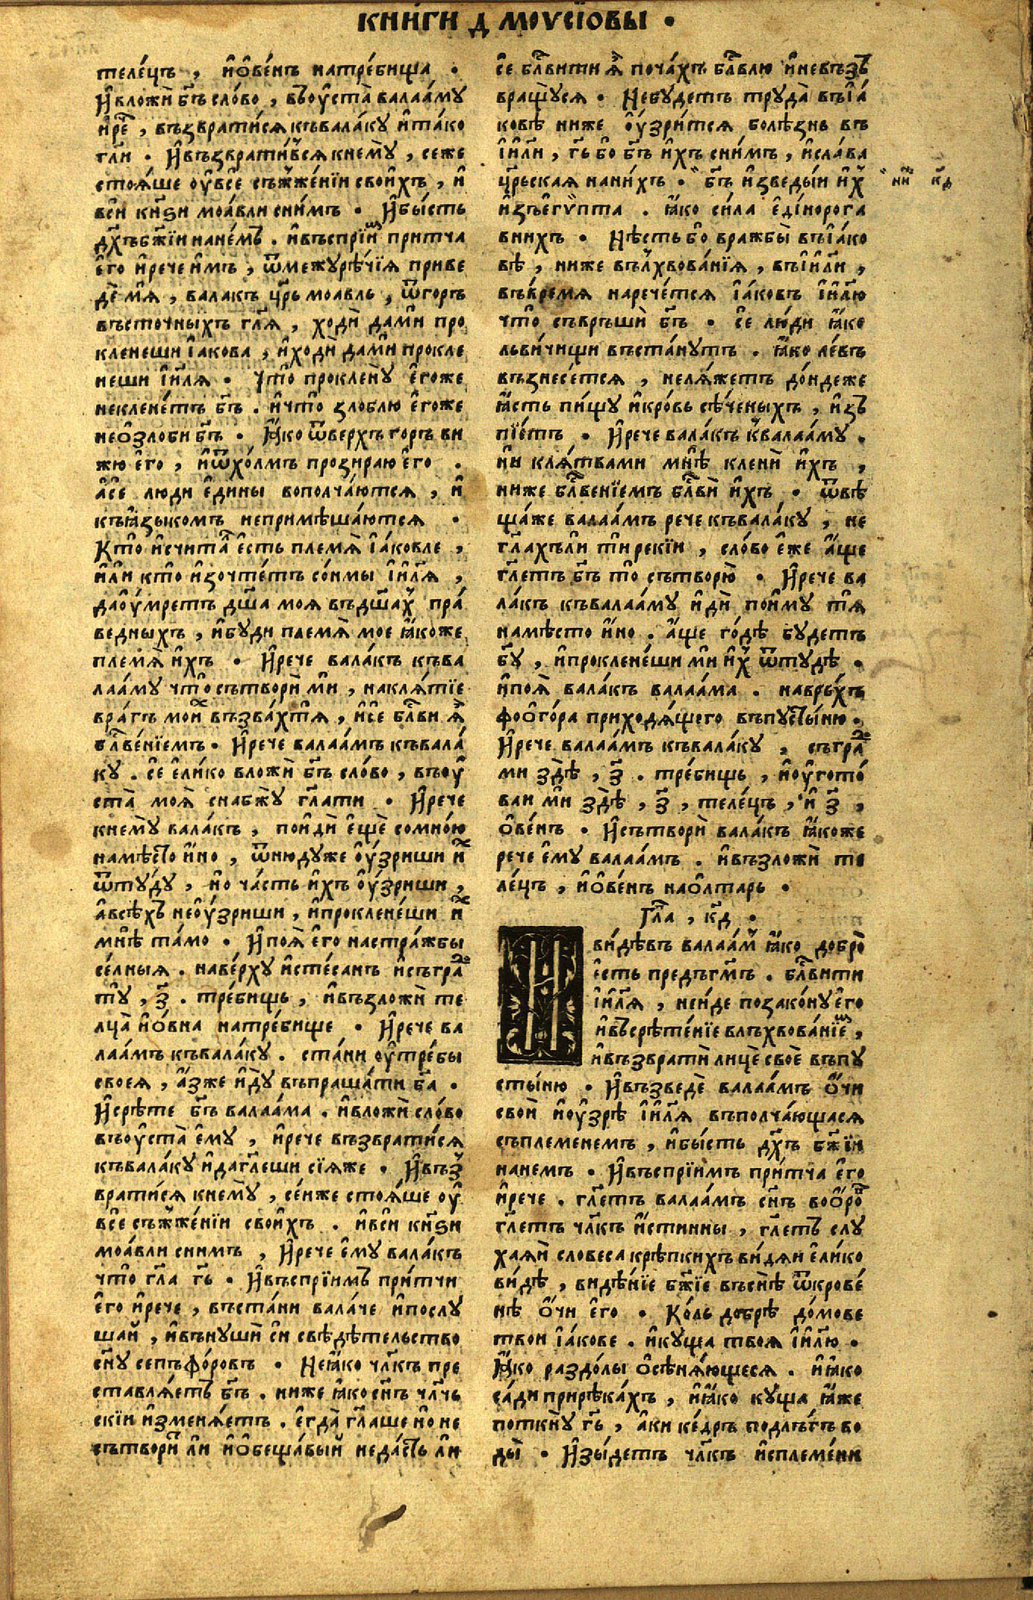 КНИГИ Д҃ МОѴСІОВЫ ·
теле́цъ , и҆ѻ҆ве́нъ натре́бища ·
И҆вложѝ бг҃ъ сло́во , въоу҆ста̀ валаа́му
и҆ре́ч , възврати́ся къвала́ку и҆та́ко
гл҃и · И҆възврати́вся кнему̀ , сеже
стоя́ше оу҆все съжже́нїи свои́хъ , и҆
вси кн҃ѕи моа́вли сним · И҆бы́сть
дх҃ъбж҃їи нане́мъ . и҆въспрїи́м при́тча
е҆го̀ и҆рече и҆мъ , ѿмежурѣ́чїя приве
де́ мя , вала́къ цр҃ь моа́вль , ѿго́ръ
въсто́чныхъ гл҃я , ходѝ да́ми про
кленеши і҆а́кова , и҆ходѝ да́ми прокле
неши і҆и҃ля · Что̀ прокленꙋ̀ е҆го́же
некле́нетъ бг҃ъ . и҆что̀ зло́блю е҆го́же
неѻ҆зло́би бг҃ъ · Ꙗ҆ко ѿве́рхъ го́ръ ви
жю е҆го̀ , и҆ѿхо́лмъ прозира́ю е҆го̀ .
а҆се́ лю́ди е҆ди́ны вополча́ются , и҆
къꙗ҆зы́комъ неприм​ѣша́ются ·
Кто̀ и҆счита́ е҆сть пле́мя і҆а́ковле ,
и҆лѝ кто̀ и҆зочте́тъ со́нмы і҆и҃ля ,
даоу҆мретъ дш҃а моя̀ въдш҃ах пра́
ведныхъ , и҆бу́ди пле́мя мое ꙗ҆коже
пле́мя и҆хъ · И҆рече вала́къ къва
лаа́му что̀ сътворѝ ми , накля́тїе
вра́гъ мои́х възва́хтя , и҆се бл҃ви я҆
бл҃ве́нїемъ · И҆рече валаа́мъ къвала́
ку . се е҆ли́ко вложѝ бг҃ъ сло́во , въоу҆
ста̀ моя̀ снабжу̀ гл҃ати · И҆рече
кнему̀ вала́къ , поидѝ е҆щѐ сомно́ю
намѣ́сто и҆но , ѿню́дуже оу҆́зриши и҆х
ѿту́ду , но ча́сть и҆хъ оу҆́зриши ,
а҆всѣ́хъ неоу҆́зриши , и҆проклене́ши и҆х
мнѣ̀ та́мо · И҆поя̀ е҆го̀ настра́жбы
се́лныя . наве́рху и҆сте́санъ и҆съгра
ту , з҃ . тре́бищь , и҆възложѝ те
лца̀ и҆ѻ҆вна натре́бище · И҆рече ва
лаа́мъ къвала́ку . ста́ни оу҆тре́бы
своея̀ , а҆зже и҆ду̀ въпраша́ти бг҃а ·
И҆срѣ́те бг҃ъ валаа́ма . и҆вложѝ сло́во
въоу҆ста̀ е҆му , и҆рече възврати́ся
къвала́ку и҆дагл҃еши сїя́же · И҆въз
врати́ся кнему̀ , се́нже стоя́ше оу҆
все съжже́нїи свои́хъ . и҆вси кн҃ѕи
моа́вли снимъ , И҆рече е҆му вала́къ
что̀ гл҃а гь҃ · И҆въспрїи́мъ при́тчи
е҆го̀ и҆рече , въста́ни вала́че и҆послу
шай , и҆вънушѝ си свѣдѣ́тельство
сн҃у сепъфо́ровъ · Неꙗ҆ко чл҃къ пре
ставля́етъ бг҃ъ . ниже ꙗ҆ко сн҃ъ чл҃чь
скїи и҆зменя́етъ . е҆гда̀ гл҃аше и҆ не
сътвори́т ли и҆ѻ҆беща́вый неда́сть ли
се бл҃вити я҆ поча́хъ бл҃влю и҆невъзъ
вращу́ся · Небу́детъ труда̀ въі҆а́
ковѣ ниже оу҆́зрится болѣ́знь въ
і҆и҃ли , гь҃ бо бг҃ъ и҆хъ сни́мъ , и҆сла́ва
цр҃ьская нани́хъ · бг҃ъ и҆зведы́и и҆х нн҃ кд҃
и҆зъегѵ́пта . ꙗ҆ко си́ла е҆ді́норога
вни́хъ · Нѣ́сть бо вражбы̀ въі҆а́ко
вѣ , ниже вълхвова́нїя , въі҆и҃ли ,
въвре́мя нарече́тся і҆а́ковъ і҆и҃лю
что̀ съвръшѝ бг҃ъ · се лю́ди ꙗ҆ко
льви́чищи въста́нутъ . ꙗ҆ко ле́въ
възнесе́тся , неля́жетъ до́ндеже
ꙗ҆сть пи́щу и҆кро́вь сѣ́ченыхъ , и҆зъ
пїе́тъ · И҆рече вала́къ квалаа́му .
ни кля́твами мнѣ̀ кленѝ и҆хъ ,
ниже бл҃ве́нїемъ бл҃вѝ и҆хъ · ѿвѣ
ща́же валаа́мъ рече къвала́ку , не
гл҃ахъли тѝ рекїи , сло́во е҆же а҆ще
гл҃етъ бг҃ъ то̀ сътворю̀ · И҆рече ва
ла́къ къвалаа́му и҆дѝ пои́му тя
намѣ́сто и҆но . а҆ще го́дѣ бу́детъ
бг҃у , и҆проклене́ши ми и҆х ѿту́дѣ ·
и҆поя̀ вала́къ валаа́ма . навръ́хъ
фоѻ҆го́ра приходя́щего въпусты́ню .
И҆рече валаа́мъ къвала́ку , съгра
ми здѣ̀ , з҃ . тре́бищь , и҆оу҆гото́
ваи ми здѣ̀ , з҃ , теле́цъ , и҆ з҃ ,
ѻ҆ве́нъ · И҆сътворѝ вала́къ ꙗ҆коже
рече е҆му валаа́мъ . и҆възложѝ те
ле́цъ , и҆ѻ҆ве́нъ наѻ҆лта́рь ·
Гл҃а , кд҃ ·
И видѣ́въ валаа́м ꙗ҆ко добро̀
е҆сть предъгм҃ъ . бл҃вити
і҆и҃ля , неи́де позако́ну е҆го
и҆въсрѣ́тенїе влъхвова́нїем ,
и҆възвратѝ лицѐ своѐ въпу
сты́ню · И҆възведѐ валаа́мъ ѻ҆́чи
свои̂ и҆оу҆зрѣ̀ і҆и҃ля въполча́ющася
съплеменемъ , и҆бы́сть дх҃ъ бж҃їи
нане́мъ · И҆въспрїи́мъ при́тча е҆го̀
и҆рече . гл҃етъ валаа́мъ сн҃ъ воѻ҆ро
гл҃етъ чл҃къ и҆́стинны , гл҃етъ слу
хаяи̂ словеса крѣ́пкихъ ви́дяи е҆ли́ко
ви́дѣ , видѣ́нїе бж҃їе въснѣ̀ ѿкрове́
нѣ ѻ҆́чи е҆го̀ · Ко́ль до́брѣ до́мове
твои і҆а́кове . и҆ку́ща твоя̀ і҆и҃лю ·
Ꙗ҆ко раздо́лы ѻ҆сѣня́ющеся . и҆ꙗ҆ко
са́ди прирѣка́хъ , и҆ꙗ҆ко ку́ща ꙗ҆же
поткну̀ гь҃ , а҆ки ке́дръ подлѣ́гъ во
ды̀ · И҆зы́детъ чл҃къ и҆спле́мени